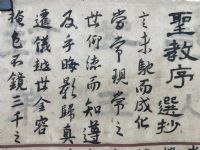 聖教序 選抄
言未馳而成化
當常現常之
世仰德而知遵
及乎晦影歸真
遷儀越世金容
掩色不鏡三千之